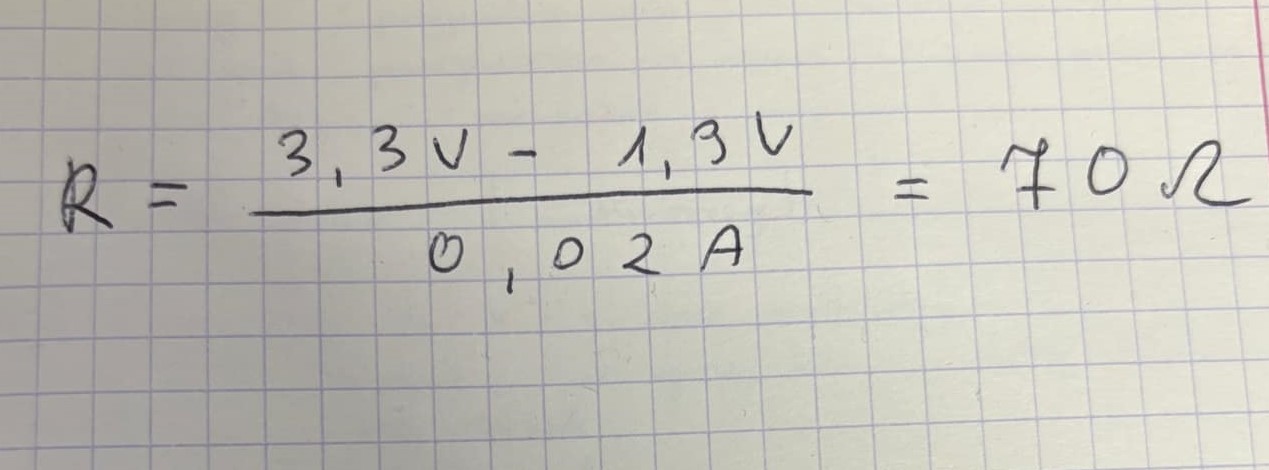 R = (3,3V - 1,9V) / (0,02A) = 70Ω